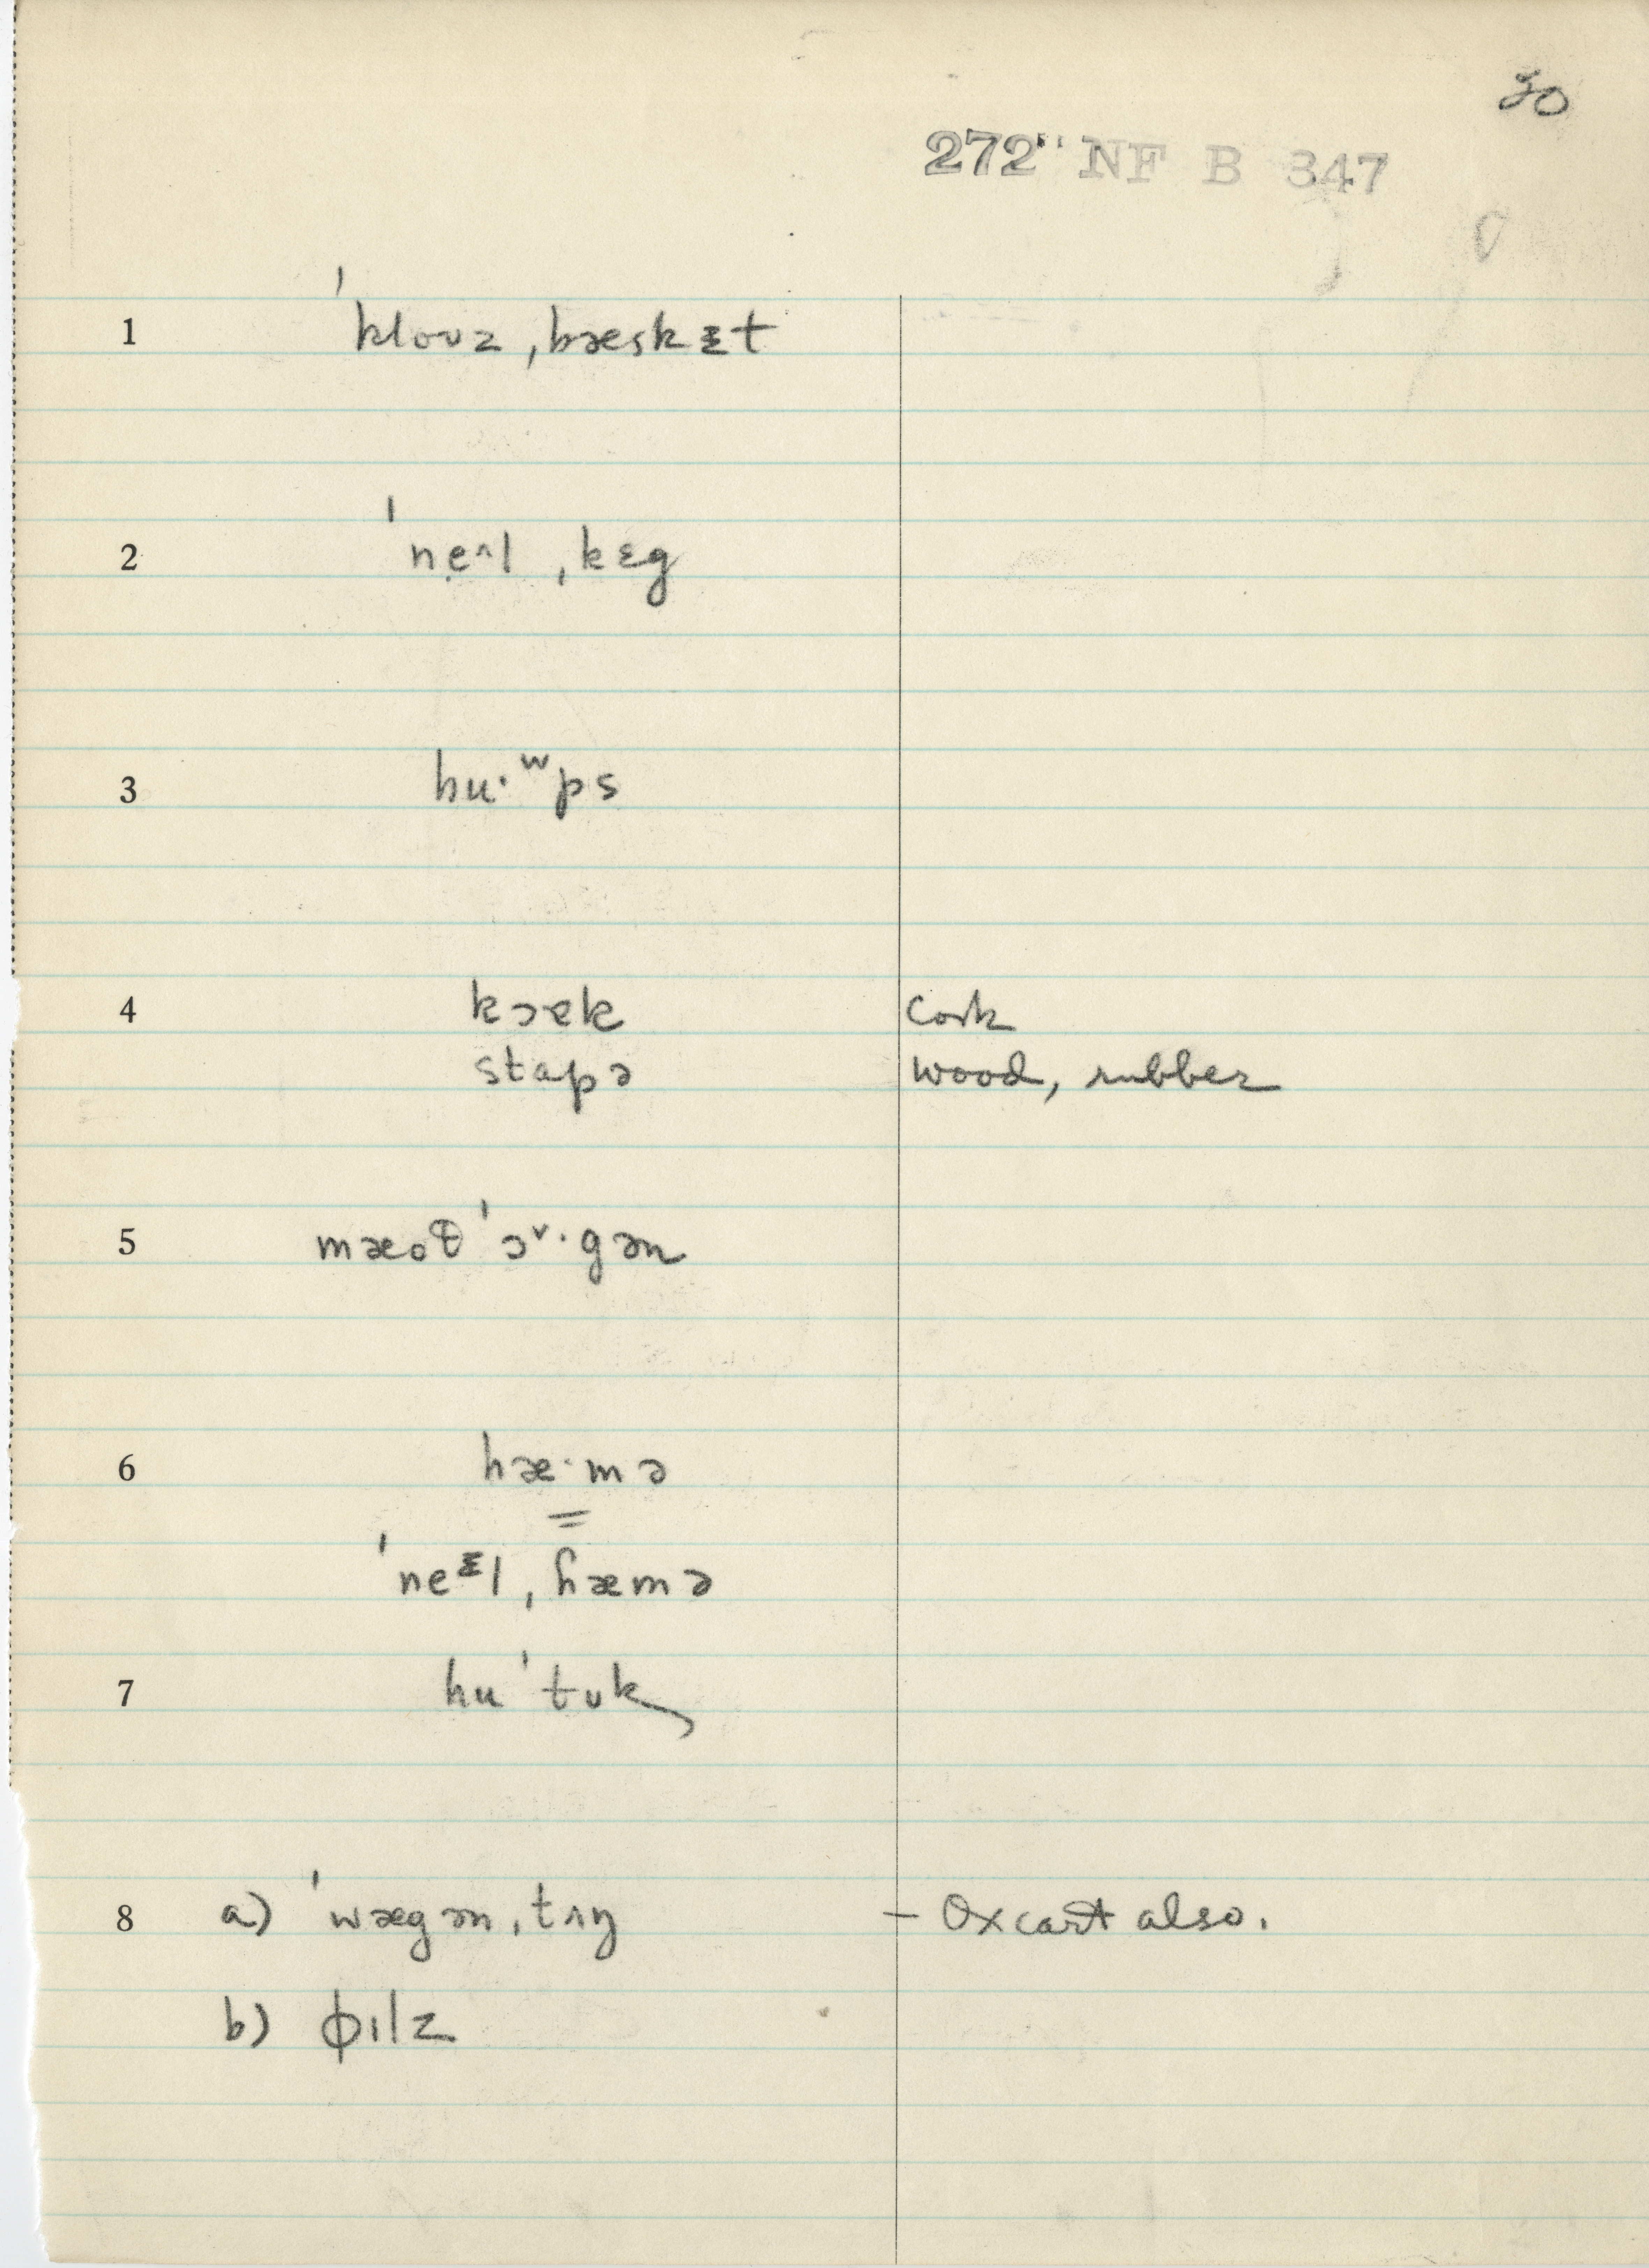 20
272" NF B 347
1 ˈklouz ˌbæskᵻt
2 ˈnẹ^l ˌkɛg
3 hu·ʷps
4 kɔɐk cork
stapə wood, rubber
5 mæoθ ˈɔˇ·gən
6 hæ·mə
=
ˈneᵋl ˌɦæmə
7 huˈtuk
8 a) ˈwægən ˌtʌŋ – Oxcart also.
b) ɸılz